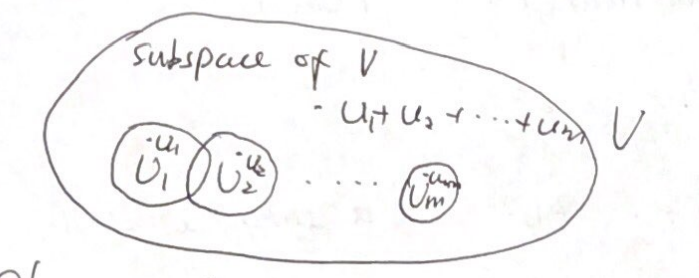 subspace of V
· u₁+ u₂ + ··· + uₘ V
·u₁ ·u₂ ·uₘ
U₁ U₂ ····· Uₘ